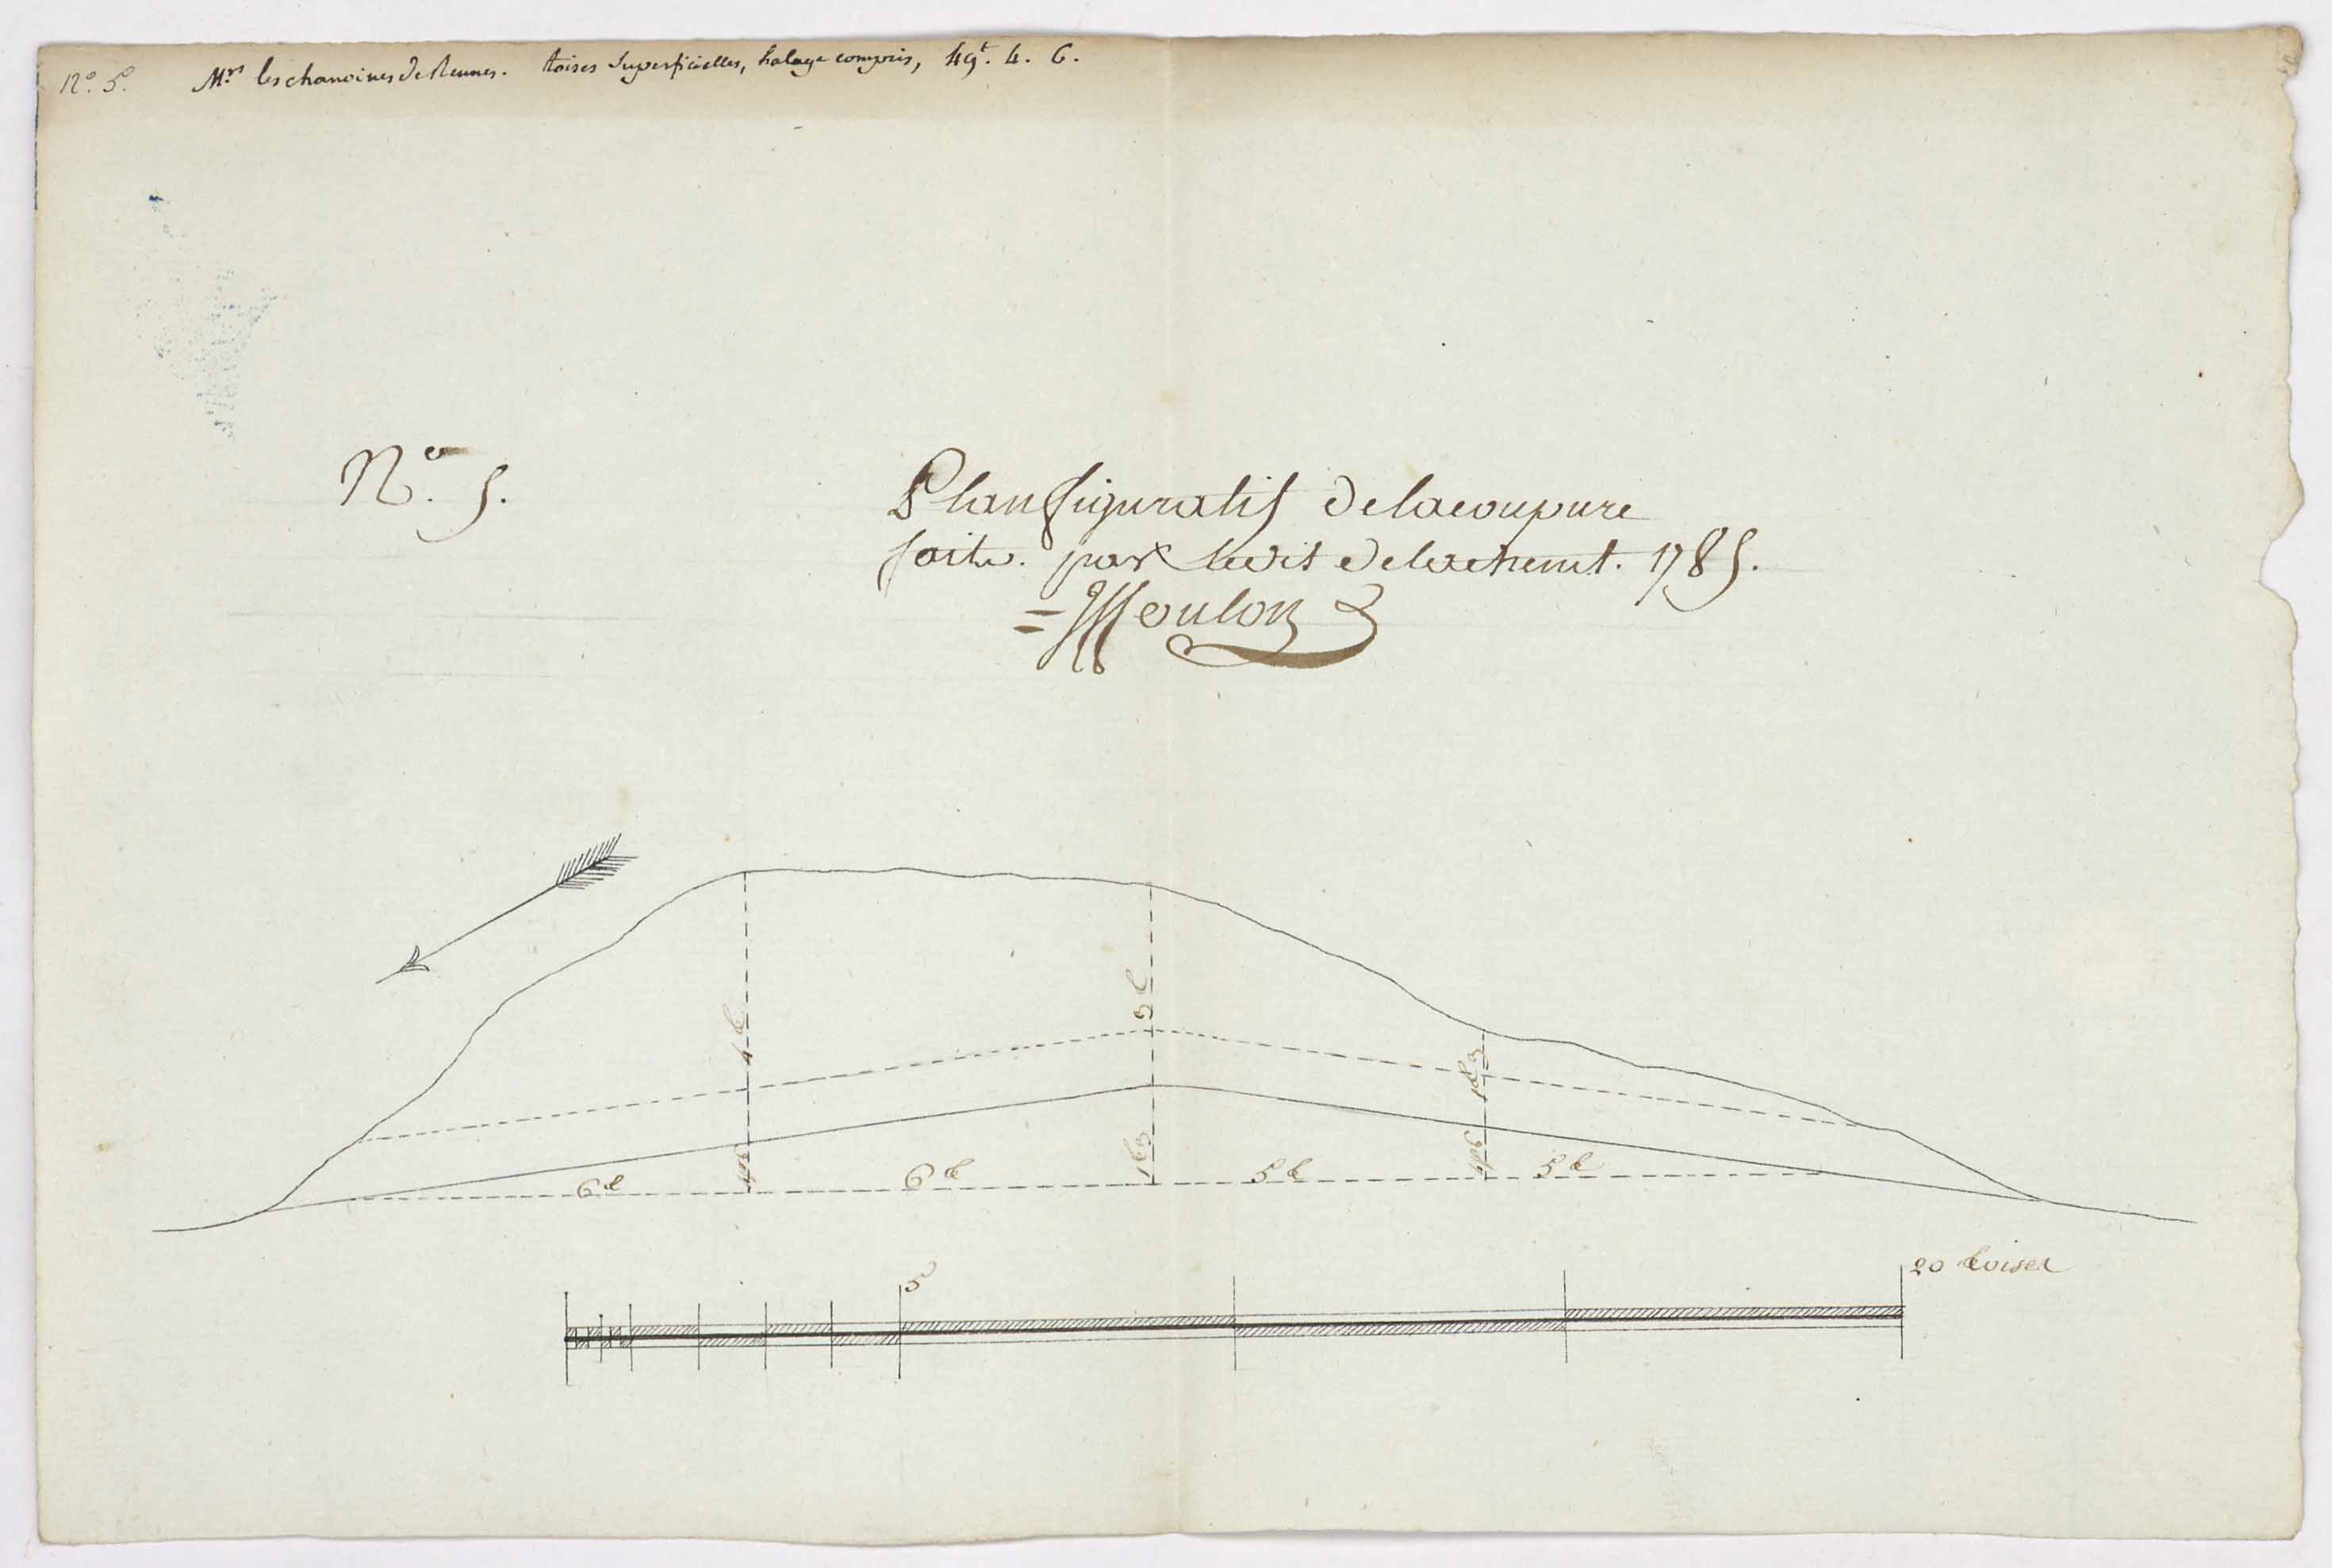 N.º 5º. Mrs les chanoines de Rennes. toises Superficielles, halage compris, 49t. 4. 6.
Nº. 5.
Plan figuratif de la coupure
faite par ledit detachemt. 1785.
= Moulon
4t
2t
1t3
1t3
6t
6t
5t
5t
5
20 toises